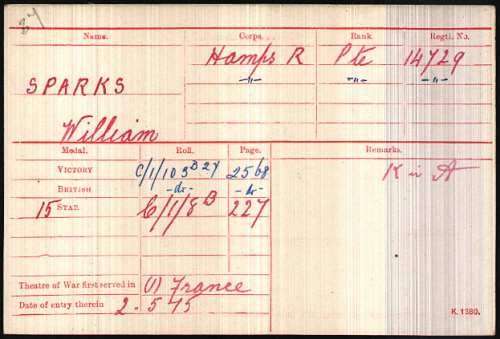 84
Name. Corps. Rank. Regtl. No.
Hamps R Pte 14729
SPARKS -"- -"- -"-
William
Medal. Roll. Page. Remarks.
VICTORY C/1/103 B27 2568 K in A
BRITISH -do- -do-
15 STAR C/1/8 B 227
Theatre of War first served in (1) France
Date of entry therein 2.5.15
K. 1380.